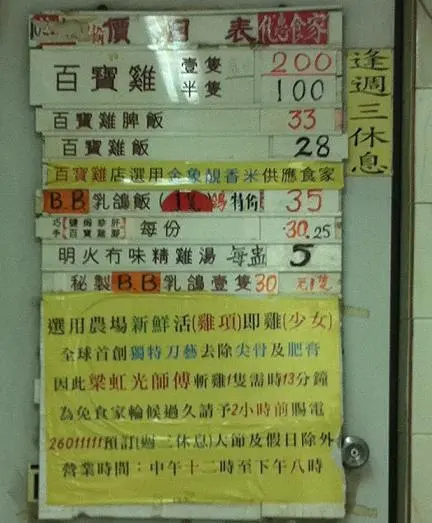 價目表 優惠食家
百寶雞 壹隻 200
半隻 100
逢週三休息
百寶雞脾飯 33
百寶雞飯 28
百寶雞店選用金象靚香米供應食家
B.B乳鴿飯(1隻)鴿特價 35
每份 30.25
明火冇味精雞湯 每盅 5
秘製B.B乳鴿壹隻30
選用農場新鮮活(雞項)即雞(少女)
全球首創獨特刀藝去除尖骨及肥膏
因此梁虹光師傅斬雞1隻需時13分鐘
為免食家輪候過久請予2小時前賜電
26011111預訂(週三休息)大節及假日除外
營業時間：中午十二時至下午八時